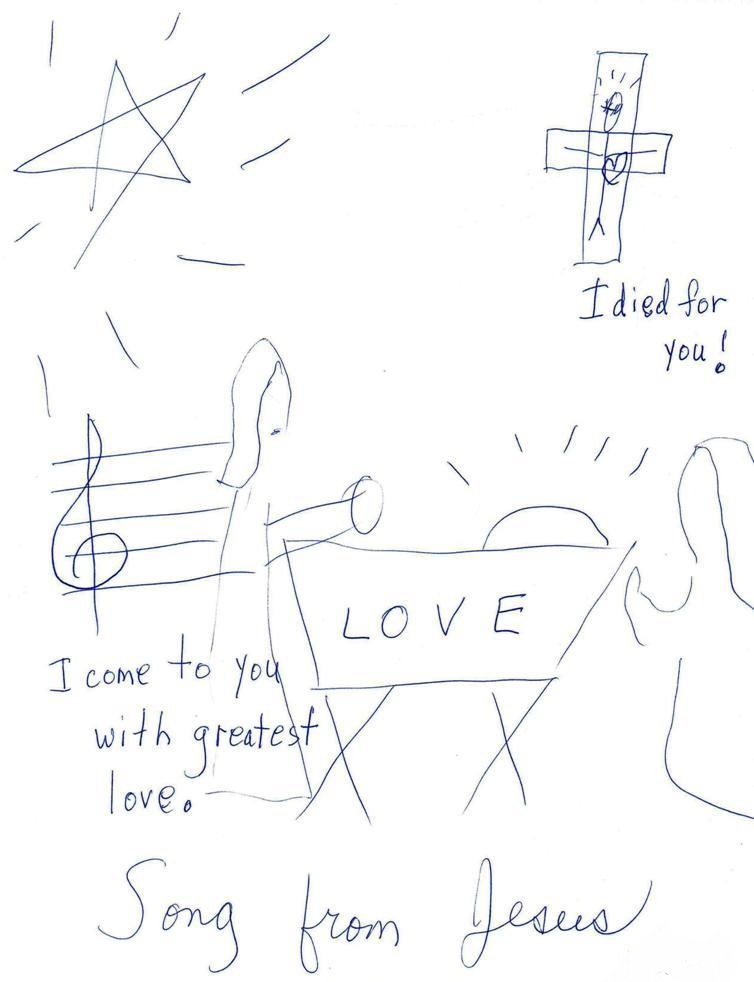 I died for
you!
LOVE
I come to you
with greatest
love.
Song from Jesus